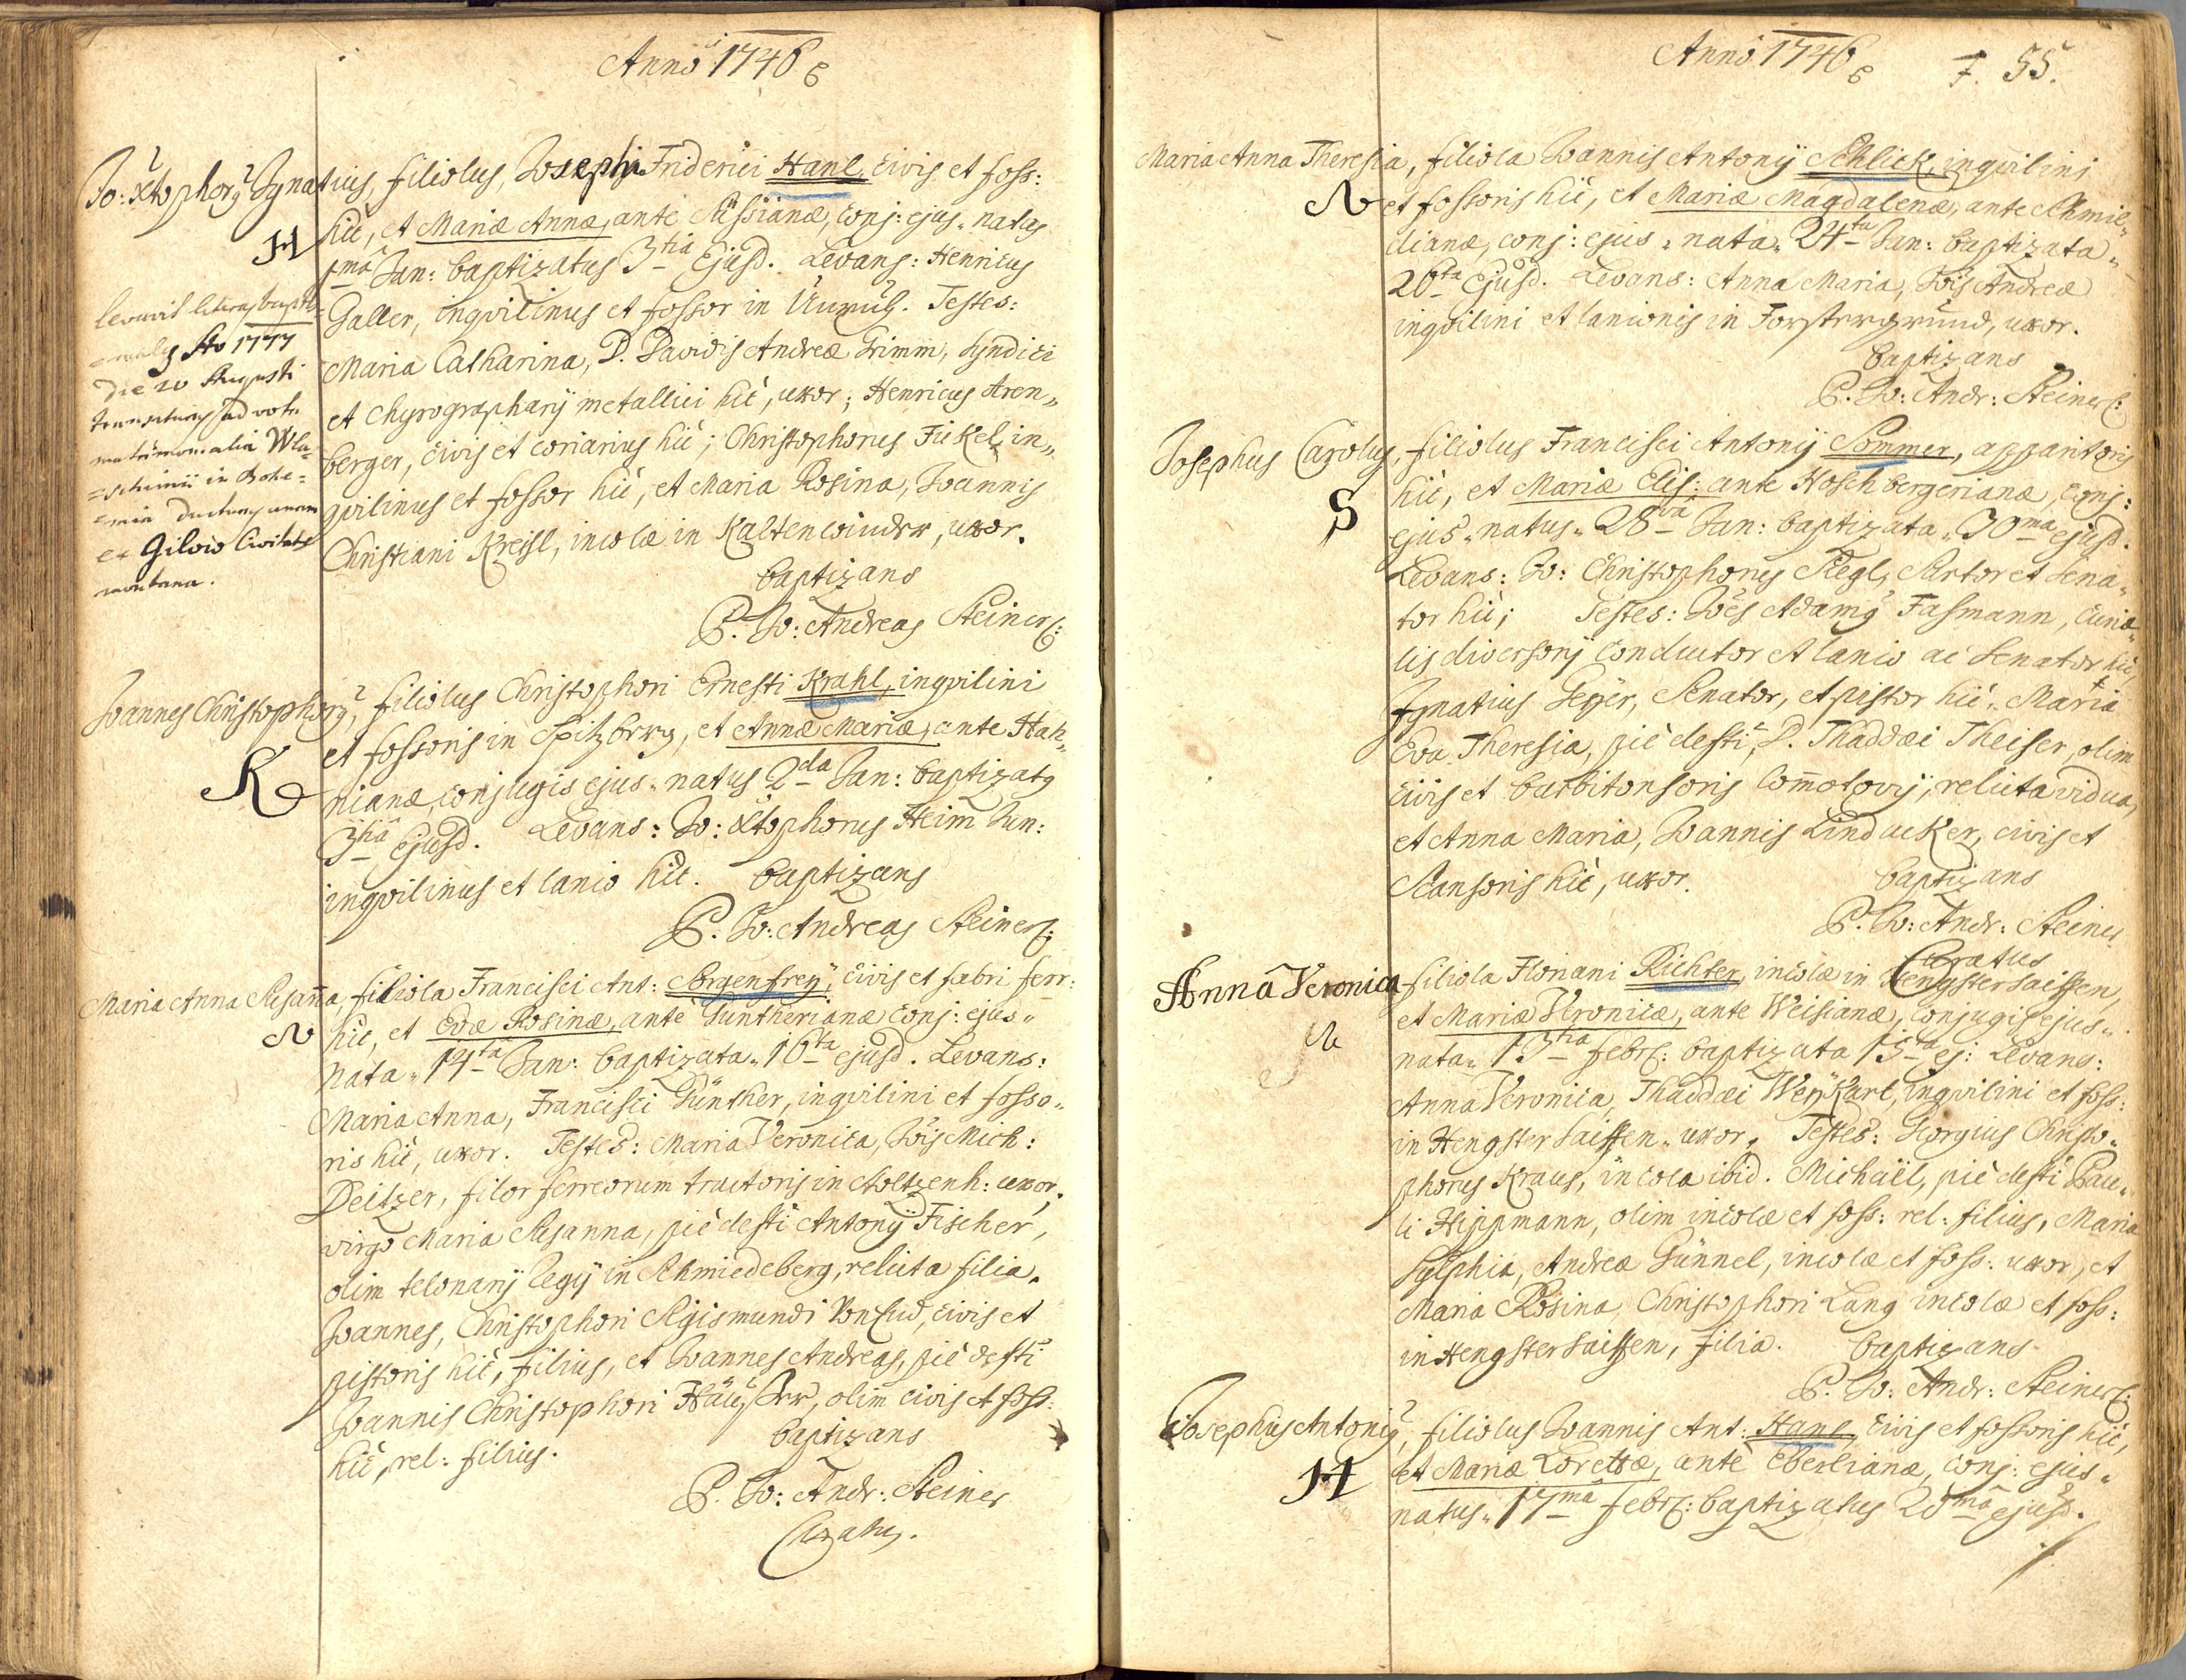 Anno 1746
Jo: Xtophorg Ignatius, filiolus, Josephi Friderici Hanl, civis et foss:
H
hic, et Mariæ Annæ, ante Süssianæ, conj: ejus, natus
1ma Jan: baptizatus 3tia Ejusd. Levans: Henricus
Galler, inqvilinus et fossor in Testes:
Maria Catharina, D. Davidis Andreæ Grimm, Syndici
et Chyrographarij metallici hic, uxor; Henricus Aren„
berger, civis et coriarius hic; Christophorus Fickel, in„
qvilinus et fossor hic, et Maria Rosina, Joannis
Christiani Kreisl, incolæ in Kaltenwinder, uxor.
baptizans
P. Jo: Andreas Steiner C:
levavit literas baptis
Ao 1777
Die 20 Augusti
ad vota
matrimonialia Wla=
=schimii in Bohe=
=mia ducturus
ex Gilvio Civitate
montana.
Joannes Christophorg, filiolus Christophori Ernesti Krahl, inqvilini
K
et fossoris in Spitzberg, et Annæ Mariæ, ante Hah„
nianæ, conjugis ejus, natus 2da Jan: baptizatg
3tia Ejusd. Levans: Jo: Xtophorus Heim Jun:
inqvilinus et lanio hic. baptizans
P. Jo: Andreas Steiner C:
Maria Anna Susanna, filiola Francisci Ant: Sorgenfrey, civis et fabri ferr:
hic, et Evæ Rosinæ, ante Guntherianæ conj: ejus„
Nata„ 14ta Jan: baptizata„ 16ta ejusd. Levans:
Maria Anna, Francisci Günther, inqvilini et fosso„
ris hic, uxor. Testes: Maria Veronica, Jois Mich:
Deitzer, filor ferreorum tractoris in Holtzenh: uxor,
virgo Maria Susanna, pie defti Antonij Fischer,
olim telonarij Regij in Schmiedeberg, relicta filia,
Joannes, Christophori Sigismundi civis et
pistoris hic, filius, et Joannes Andreas, pie defti
Joannis Christophori Häußler, olim civis et foss:
hic, rel: filius.
baptizans
P. Jo: Andr: Steiner
Curatus.
Anno 1746
f. 55.
Maria Anna Theresia, filiola Joannis Antonij Schlick, inqvilini
et fossoris hic, et Mariæ Magdalenæ, ante Schmie„
dianæ, conj: ejus, nata„ 24ta Jan: baptizata„
26ta Ejusd. Levans: Anna Maria, Jois Andreæ
inqvilini et lanionis in Forstergrund, uxor.
baptizans
P. Jo: Andr: Steiner C:
Josephus Carolus, filiolus Francisci Antonij Sommer, apparitoris
S
hic, et Mariæ Elis: ante Hoschbergerianæ, conj:
ejus, natus„ 28va Jan: baptizata„ 30ma ejusd.
Levans: Jo: Christophorus Siegl, Sartor et Sena„
tor hic; Testes: Joes Adamg Fasmann, curia„
lis diversorij conductor et lanio ac Senator hic,
Ignatius Seyer, Senator, et pistor hic, Maria
Eva Theresia, pie defti, D. Thaddæi Theiser, olim
civis et barbitonsoris Comotovij, relicta vidua,
et Anna Maria, Joannis Lindacker, civis et
Scansoris hic, uxor. baptizans
P. Jo: Andr: Steiner
Curatus
Anna Veronica filiola Floriani Richter, incolæ in Hengstersaiffen,
et Mariæ Veronicæ, ante Weisianæ, conjugis ejus„
nata„ 13tia Febr: baptizata 15ta ej: Levans:
Anna Veronica, Thaddæi Weykart, inqvilini et foss:
in Hengstersaiffen„ uxor, Testes: Georgius Christo„
phorus Kraus, incola ibid. Michaël, pie defti Pau„
li Hippmann, olim incolæ et foss: rel: filius, Maria
Sylphia, Andreæ Günnel, incolæ et foss: uxor, et
Maria Rosina, Christophori Lang incolæ et foss:
in Hengstersaiffen, filia. baptizans
P. Jo: Andr: Steiner C:
Josephus Antonig, filiolus Joannis Ant: Hanl, civis et fossoris hic,
H
et Mariæ Lorettæ, ante Eberlianæ, conj: ejus„
natus„ 17ma Febr: baptizatus 20ma ejusd.